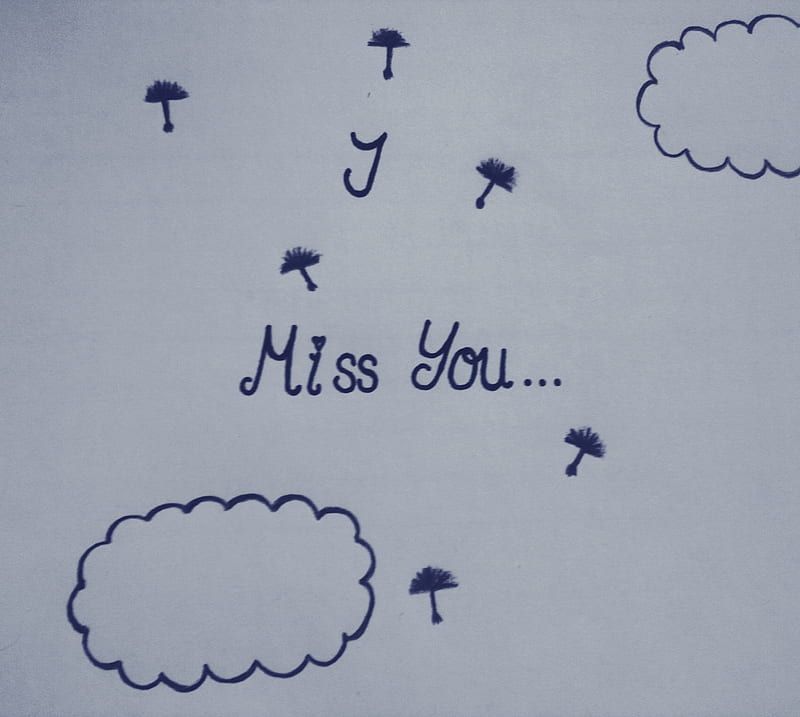 I
Miss You...